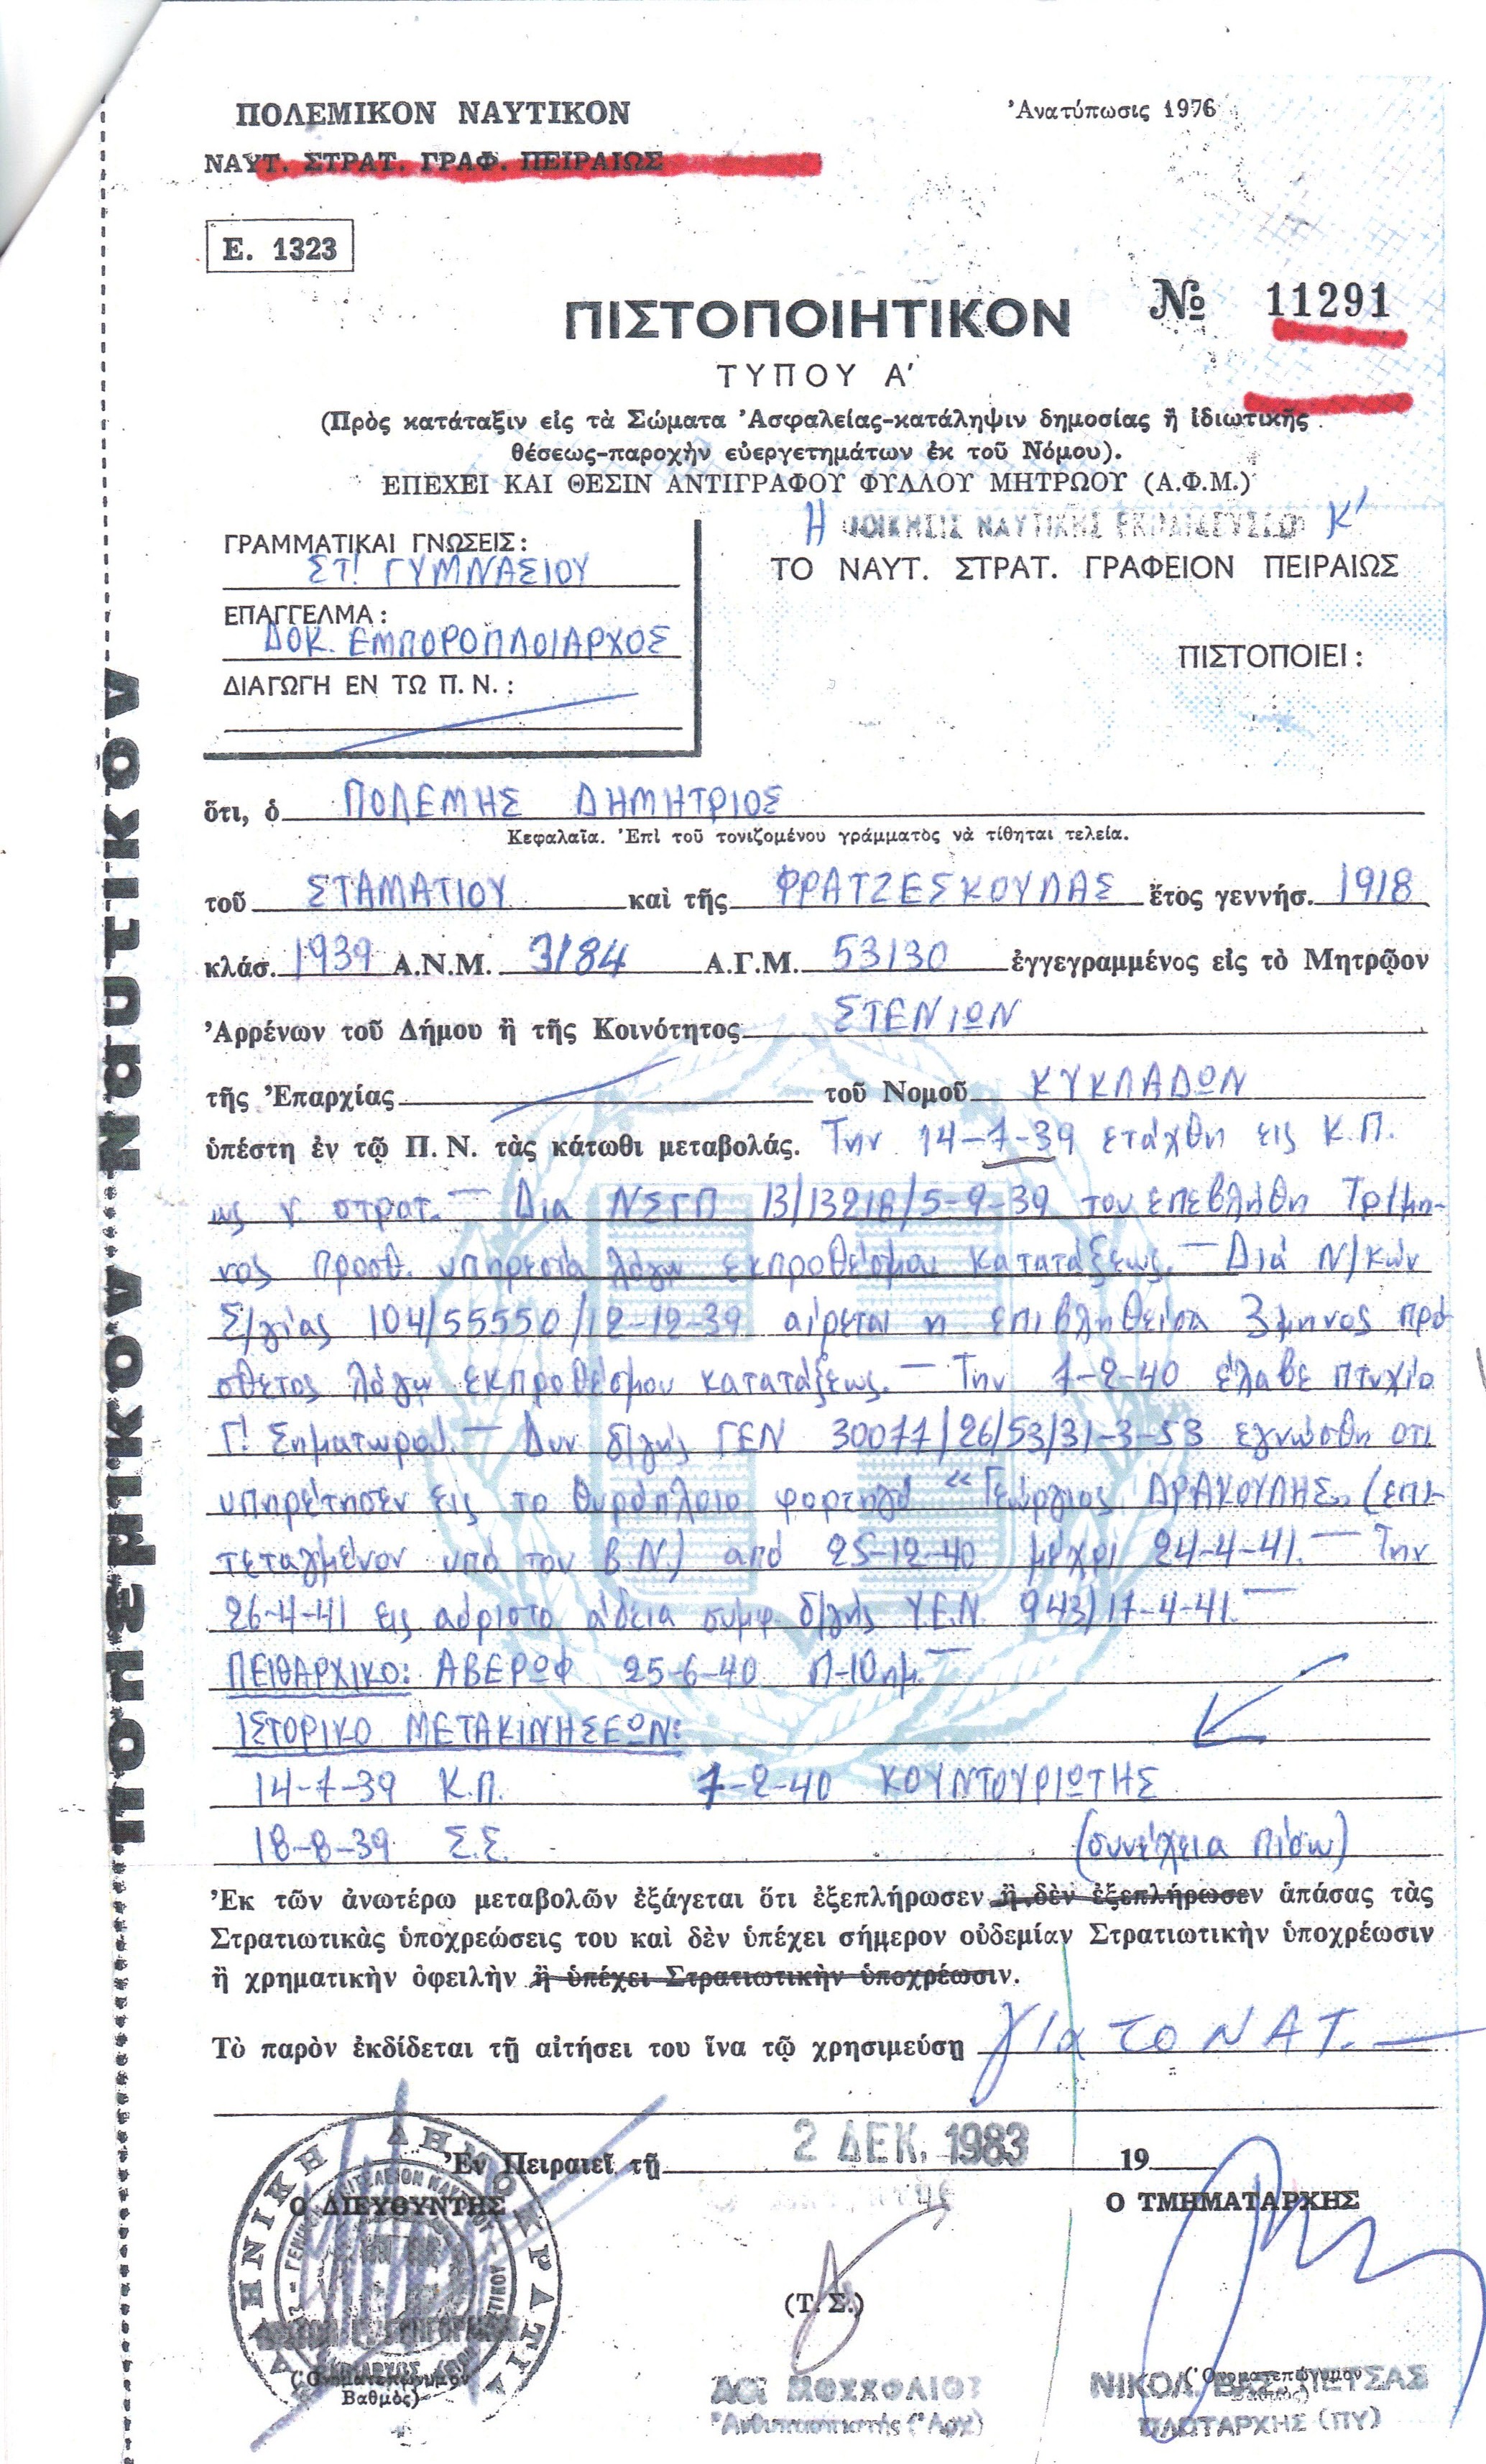 ΠΟΛΕΜΙΚΟΝ ΝΑΥΤΙΚΟΝ
Ἀνατύπωσις 1976
ΝΑΥΤ. ΣΤΡΑΤ. ΓΡΑΦ. ΠΕΙΡΑΙΩΣ
Ε. 1323
ΠΙΣΤΟΠΟΙΗΤΙΚΟΝ
№ 11291
ΤΥΠΟΥ Α'
(Πρὸς κατάταξιν εἰς τὰ Σώματα Ἀσφαλείας-κατάληψιν δημοσίας ἢ ἰδιωτικῆς
θέσεως-παροχὴν εὐεργετημάτων ἐκ τοῦ Νόμου).
ΕΠΕΧΕΙ ΚΑΙ ΘΕΣΙΝ ΑΝΤΙΓΡΑΦΟΥ ΦΥΛΛΟΥ ΜΗΤΡΩΟΥ (Α.Φ.Μ.)
Η ΔΙΟΙΚΗΣΙΣ ΝΑΥΤΙΚΗΣ ΕΚΠΑΙΔΕΥΣΕΩΣ Κ'
ΤΟ ΝΑΥΤ. ΣΤΡΑΤ. ΓΡΑΦΕΙΟΝ ΠΕΙΡΑΙΩΣ
ΓΡΑΜΜΑΤΙΚΑΙ ΓΝΩΣΕΙΣ:
ΣΤ! ΓΥΜΝΑΣΙΟΥ
ΕΠΑΓΓΕΛΜΑ:
ΔΟΚ. ΕΜΠΟΡΟΠΛΟΙΑΡΧΟΣ
ΔΙΑΓΩΓΗ ΕΝ ΤΩ Π.Ν.:
ΠΙΣΤΟΠΟΙΕΙ:
ὅτι, ὁ ΠΟΛΕΜΗΣ ΔΗΜΗΤΡΙΟΣ
Κεφαλαῖα. Ἐπὶ τοῦ τονιζομένου γράμματος νὰ τίθηται τελεία.
τοῦ ΣΤΑΜΑΤΙΟΥ καὶ τῆς ΦΡΑΤΖΕΣΚΟΥΛΑΣ ἔτος γεννήσ. 1918
κλάσ. 1939 Α.Ν.Μ. 3184 Α.Γ.Μ. 53130 ἐγγεγραμμένος εἰς τὸ Μητρῷον
Ἀρρένων τοῦ Δήμου ἢ τῆς Κοινότητος ΣΤΕΝΙΩΝ
τῆς Ἐπαρχίας τοῦ Νομοῦ ΚΥΚΛΑΔΩΝ
ὑπέστη ἐν τῷ Π. Ν. τὰς κάτωθι μεταβολάς. Την 14-7-39 ετάχθη εις Κ.Π.
ως ν. στρατ. — Δια ΝΣΓΠ 13/13218/5-9-39 του επεβλήθη Τρίμη-
νος προσθ. υπηρεσία λόγω εκπροθέσμου κατατάξεως. — Διά Ν/κών
Σ/γίας 104/55550/12-12-39 αίρεται η επιβληθείσα 3μηνος πρό-
σθετος λόγω εκπροθέσμου κατατάξεως. — Την 7-2-40 έλαβε πτυχίο
Γ! Σηματωρού. — Δυν δ/γής ΓΕΝ 30077/26/53/31-3-53 εγνώσθη οτι
υπηρέτησεν εις το θυρόπλοιο φορτηγό "Γεώργιος ΔΡΑΚΟΥΛΗΣ„ (επι-
τεταγμένον υπό του Β.Ν.) από 25-12-40 μέχρι 24-4-41. — Την
26-4-41 εις αόριστο άδεια συμφ. δ/γής ΥΕΝ 943/17-4-41. —
ΠΕΙΘΑΡΧΙΚΟ: ΑΒΕΡΩΦ 25-6-40 Π-10ημ. —
ΙΣΤΟΡΙΚΟ ΜΕΤΑΚΙΝΗΣΕΩΝ:
14-7-39 Κ.Π. 7-2-40 ΚΟΥΝΤΟΥΡΙΩΤΗΣ
18-8-39 Σ.Σ. (συνέχεια πίσω)
Ἐκ τῶν ἀνωτέρω μεταβολῶν ἐξάγεται ὅτι ἐξεπλήρωσεν ἢ δὲν ἐξεπλήρωσεν ἁπάσας τὰς
Στρατιωτικὰς ὑποχρεώσεις του καὶ δὲν ὑπέχει σήμερον οὐδεμίαν Στρατιωτικὴν ὑποχρέωσιν
ἢ χρηματικὴν ὀφειλὴν ἢ ὑπέχει Στρατιωτικὴν ὑποχρέωσιν.
Τὸ παρὸν ἐκδίδεται τῇ αἰτήσει του ἵνα τῷ χρησιμεύσῃ για το ΝΑΤ. —
Ἐν Πειραιεῖ τῇ 2 ΔΕΚ. 1983 19
Ο ΔΙΕΥΘΥΝΤΗΣ
Ο ΤΜΗΜΑΤΑΡΧΗΣ
(Τ.Σ.)
(Ὀνοματεπώνυμον
Βαθμὸς)
(Ὀνοματεπώνυμον
Βαθμὸς)
Ἀνθυπασπιστής (Ἀρχ)
ΝΙΚΟΛ. ΒΑΣ. ΠΕΤΣΑΣ
ΠΛΩΤΑΡΧΗΣ (ΠΥ)
ΕΛΛΗΝΙΚΗ ΔΗΜΟΚΡΑΤΙΑ
ΠΟΛΕΜΙΚΟΝ ΝΑΥΤΙΚΟΝ